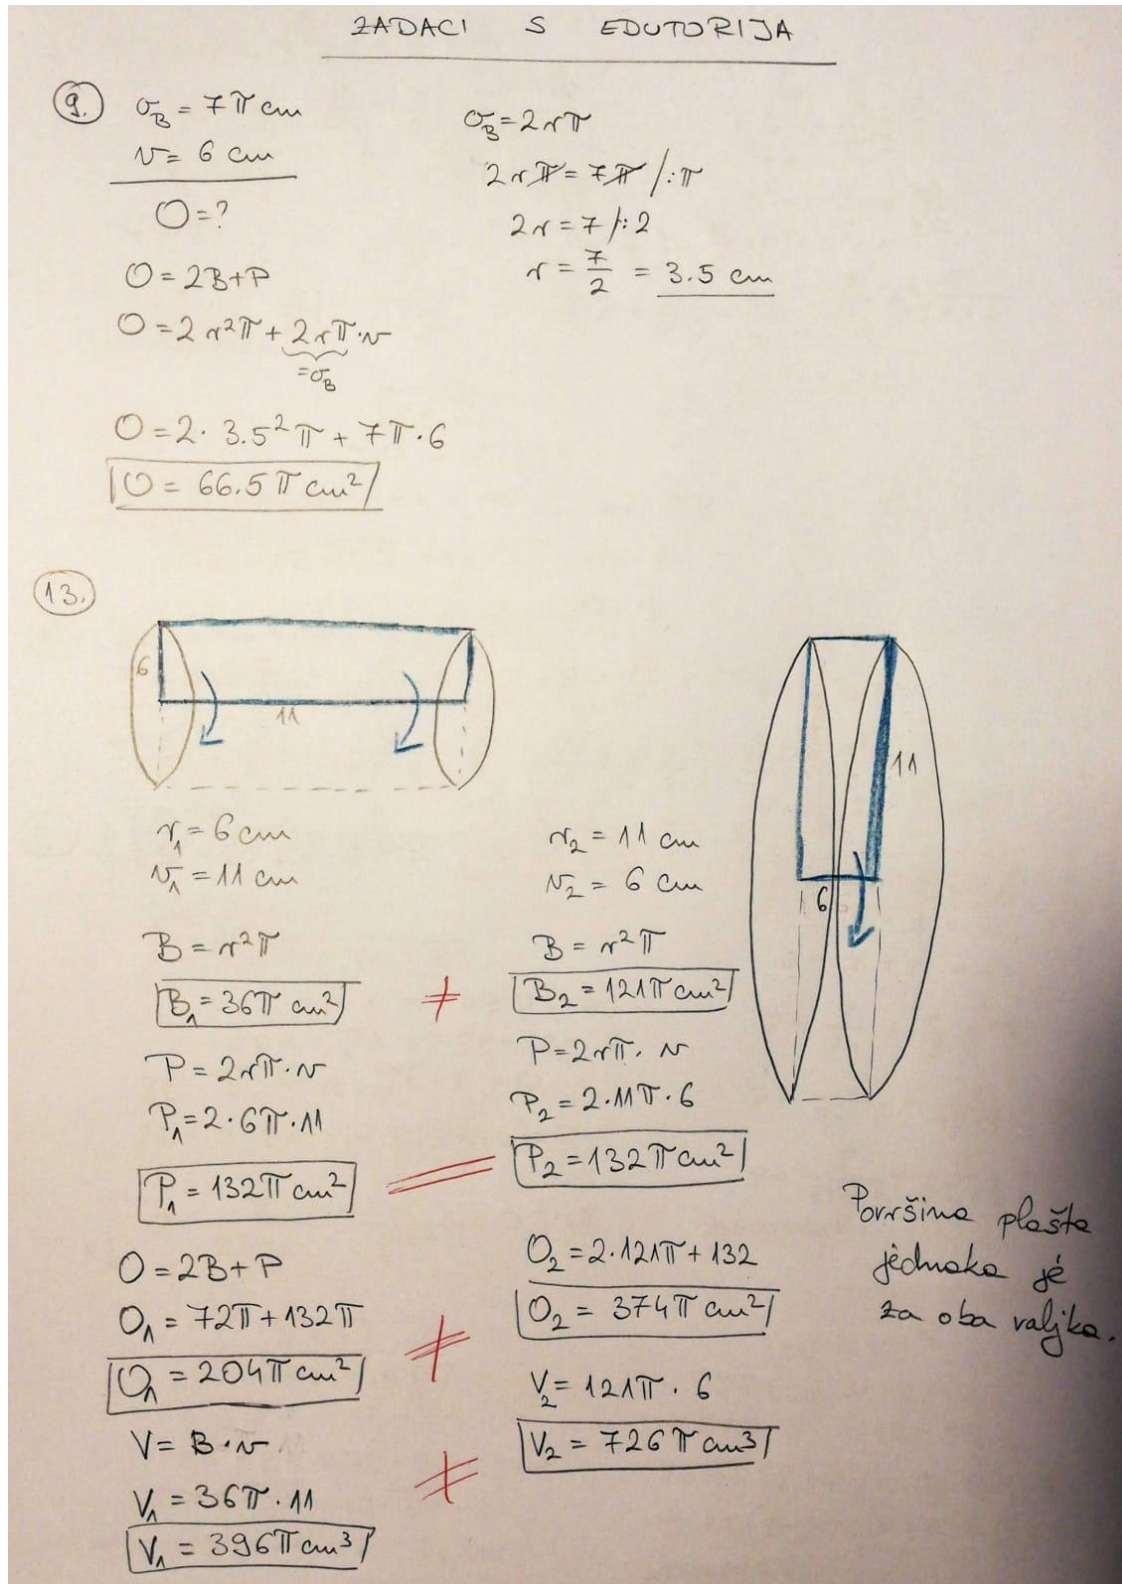 ZADACI S EDUTORIJA
9. σ_B = 7π cm
v = 6 cm
O = ?
O = 2B + P
O = 2r²π + 2rπ·v
= σ_B
O = 2 · 3.5²π + 7π·6
O = 66.5π cm²
σ_B = 2rπ
2rπ = 7π /:π
2r = 7 /:2
r = 7/2 = 3.5 cm
13.
6
11
r₁ = 6 cm
v₁ = 11 cm
B = r²π
B₁ = 36π cm²
P = 2rπ·v
P₁ = 2·6π·11
P₁ = 132π cm²
O = 2B + P
O₁ = 72π + 132π
O₁ = 204π cm²
V = B·v
V₁ = 36π·11
V₁ = 396π cm³
≠
=
≠
≠
11
6
r₂ = 11 cm
v₂ = 6 cm
B = r²π
B₂ = 121π cm²
P = 2rπ·v
P₂ = 2·11π·6
P₂ = 132π cm²
O₂ = 2·121π + 132
O₂ = 374π cm²
V₂ = 121π · 6
V₂ = 726π cm³
Površina plašta
jednaka je
za oba valjka.